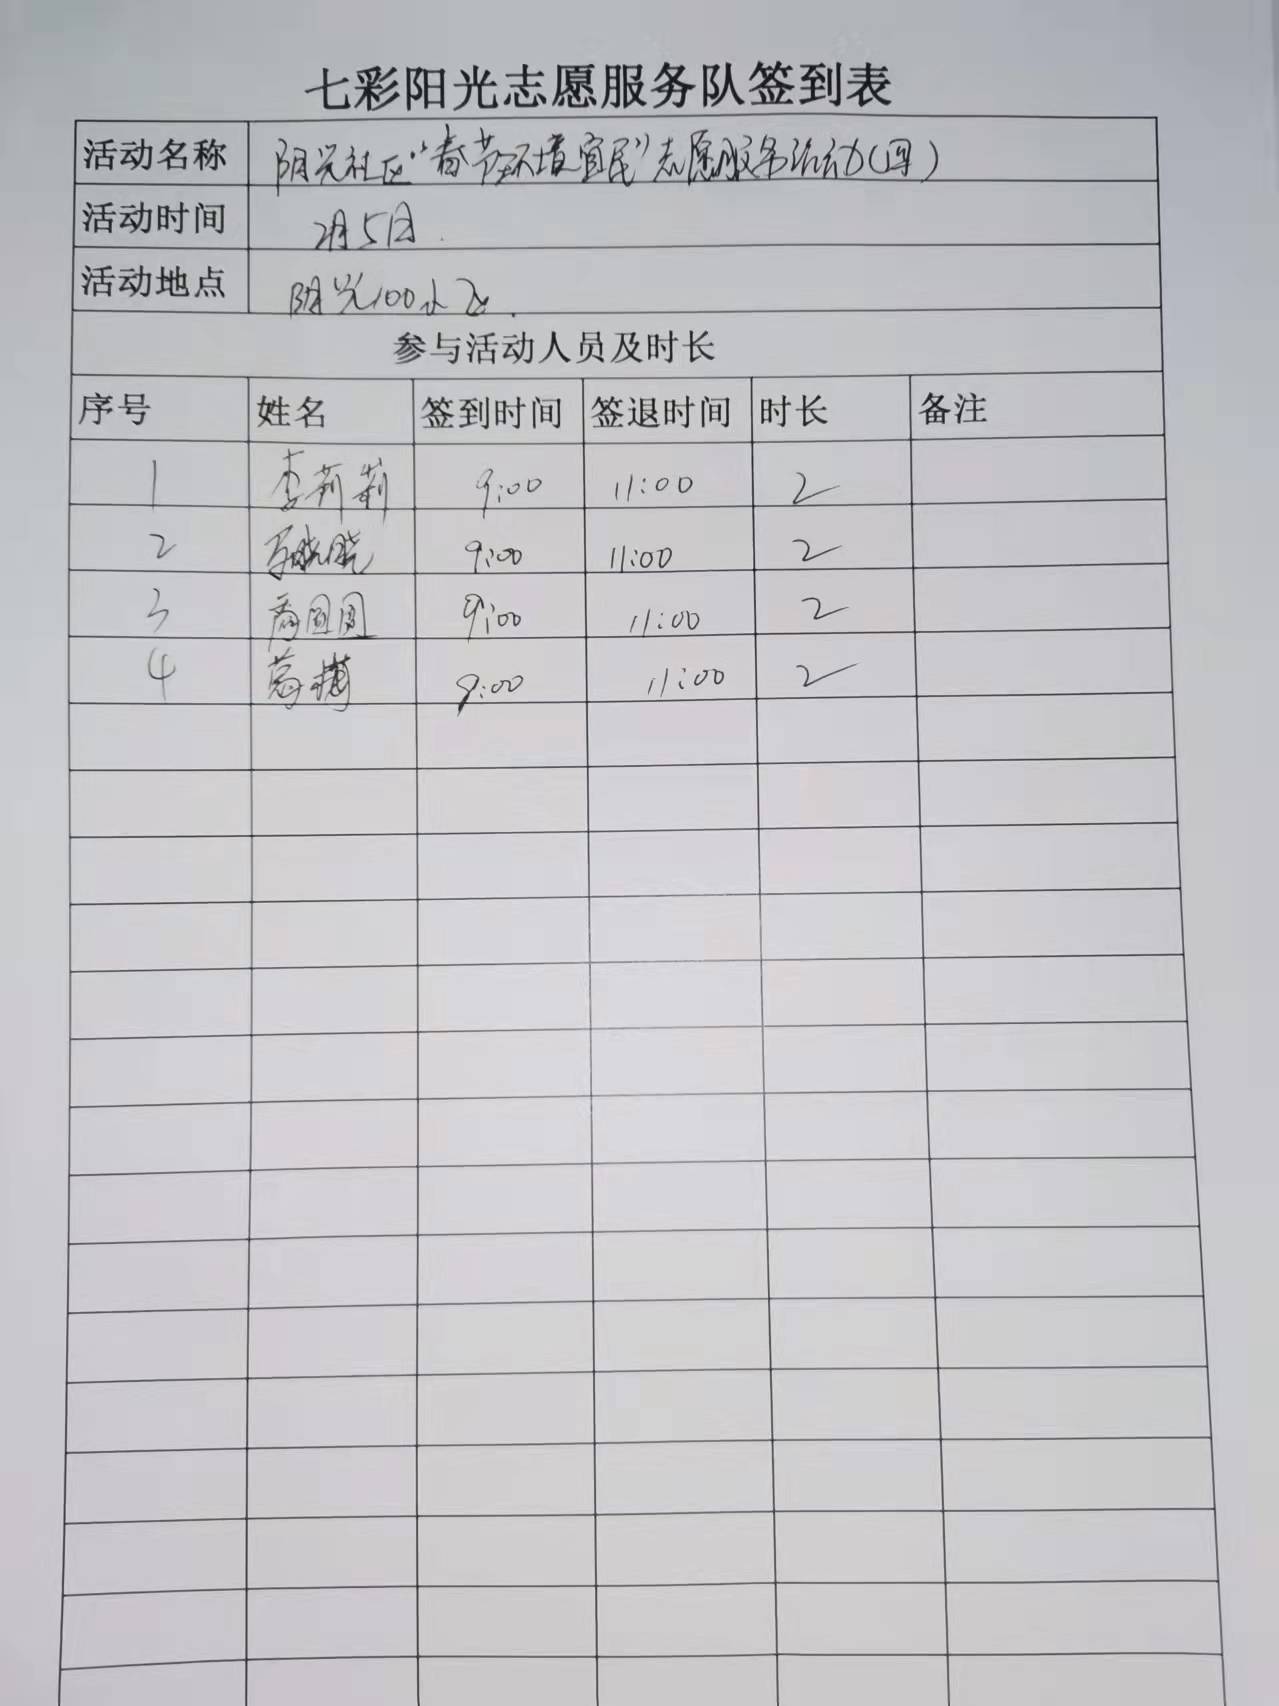 七彩阳光志愿服务队签到表
活动名称 阳光社区“春节环境宜民”志愿服务活动(四)
活动时间 2月5日.
活动地点 阳光100小区.
参与活动人员及时长
序号 姓名 签到时间 签退时间 时长 备注
1 李莉莉 9:00 11:00 2
2 晓晓 9:00 11:00 2
3 圆圆 9:00 11:00 2
4 9:00 11:00 2